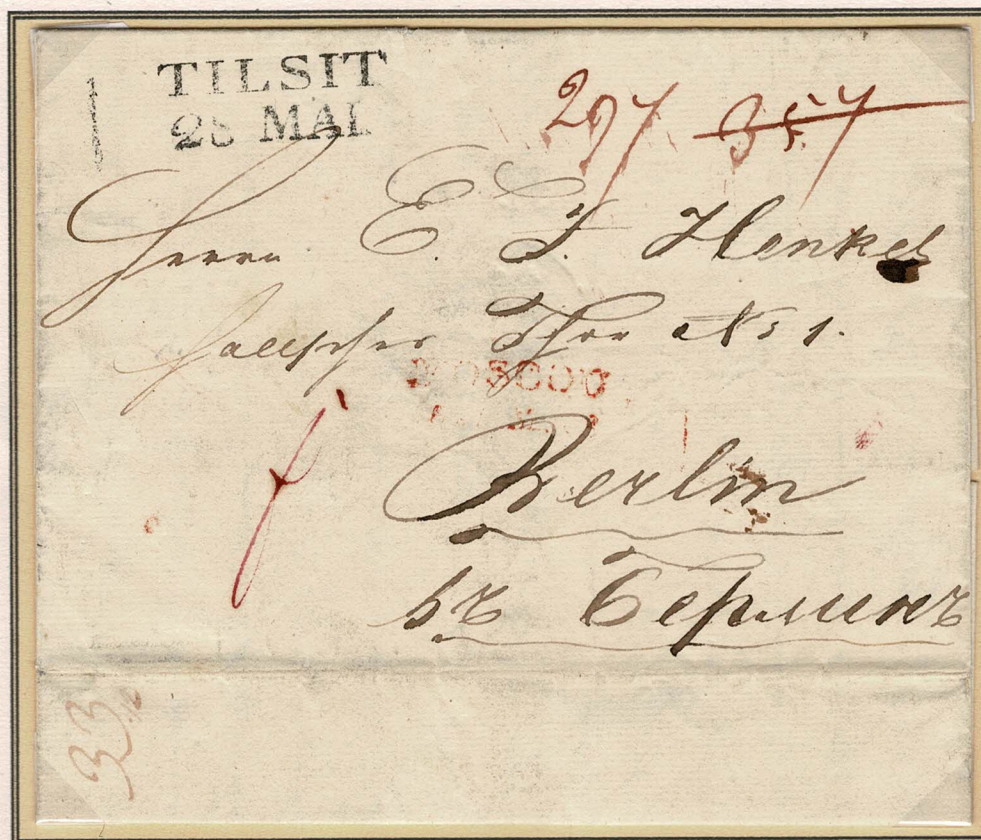 TILSIT
28 MAI
297 357
Herrn E. F. Henkel
Hallsches Thor No 1.
MOSCOU
Berlin
въ Берлинъ
33